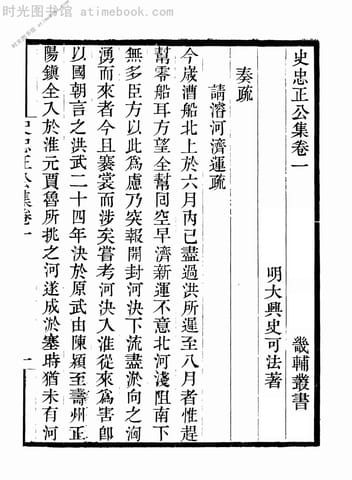 时光图书馆 - atimebook.com
史忠正公集卷一
畿輔叢書
明大興史可法著
奏疏
請濬河濟運疏
今歲漕船北上於六月內已盡過洪所遲至八月者惟趕
幫零船耳方望全幫回空早濟新運不意北河淺阻南下
無多臣方以此為慮乃突報開封河決下流盡淤向之洶
湧而來者今且褰裳而涉矣嘗考河決入淮從來為害卽
以國朝言之洪武二十四年決於原武由陳潁至壽州正
陽鎮全入於淮元賈魯所挑之河遂成淤塞時猶未有河
史忠正公集卷一
一
时光图书馆 - atimebook.com